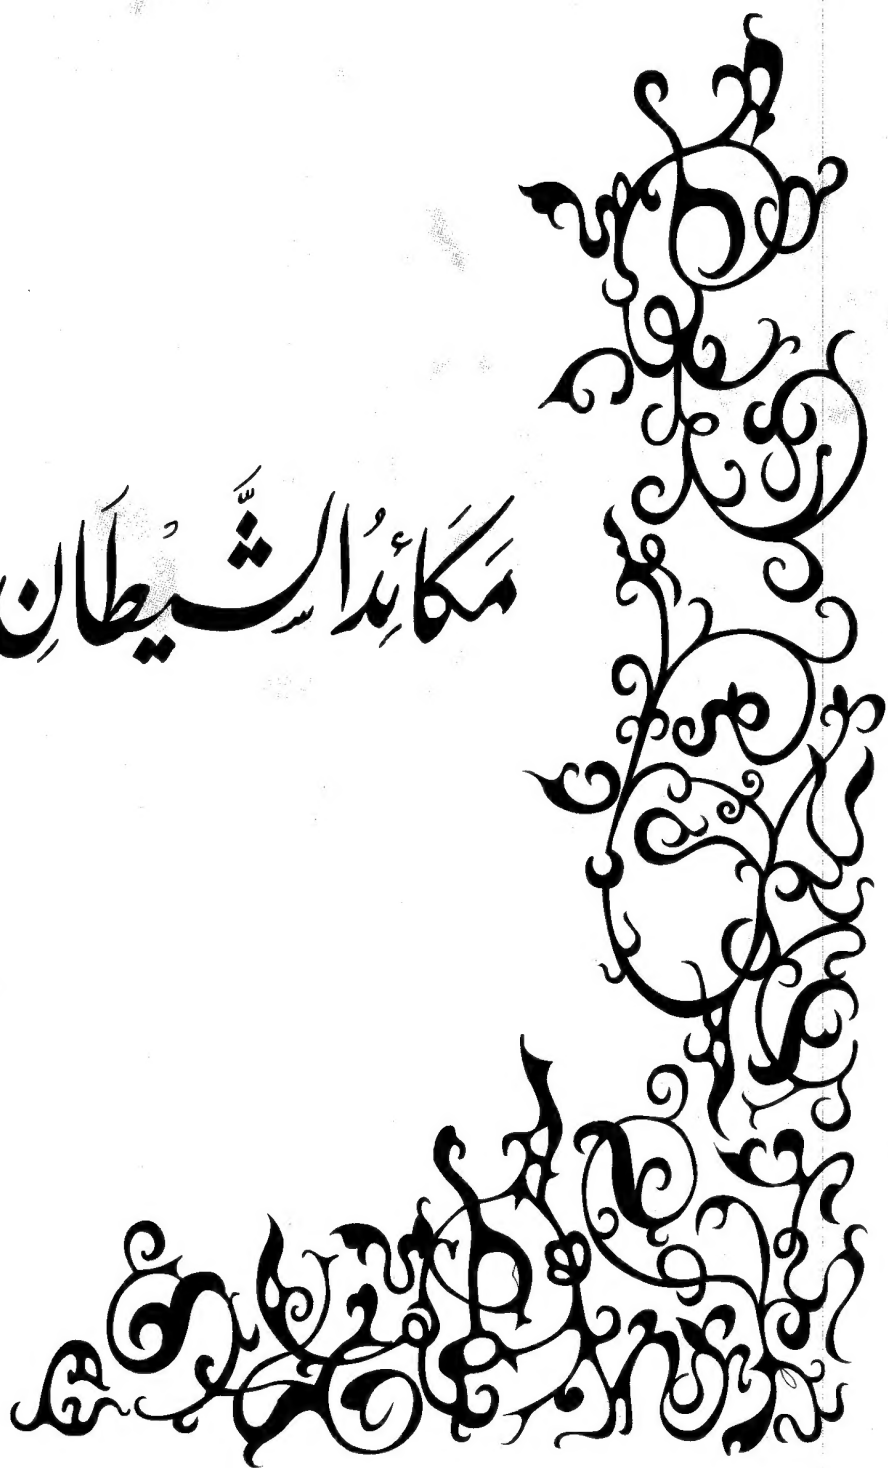 مَكَائِدُ الشَّيْطَانِ